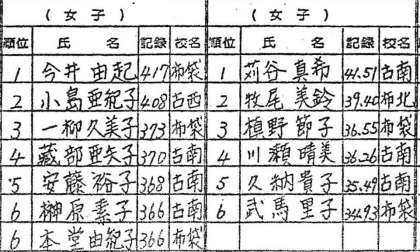 （女子）
順位 氏名 記録 校名
1 今井由起 417 布袋
2 小島亜紀子 408 古西
3 一柳久美子 373 布袋
4 蔵部亜矢子 370 古南
5 安藤裕子 368 古南
6 榊原素子 366 古南
6 本堂由紀子 366 布袋
（女子）
順位 氏名 記録 校名
1 苅谷真希 41.51 古南
2 牧尾美鈴 39.40 布北
3 植野節子 36.55 布袋
4 川瀬晴美 36.26 古南
5 久納貴子 35.49 古南
6 武馬里子 34.93 布袋